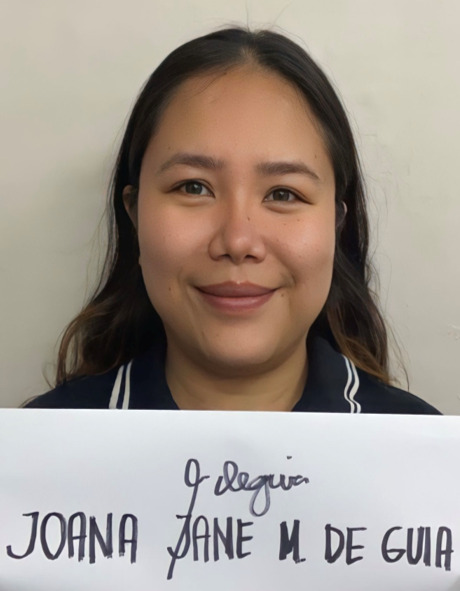 J deguia
JOANA JANE M. DE GUIA